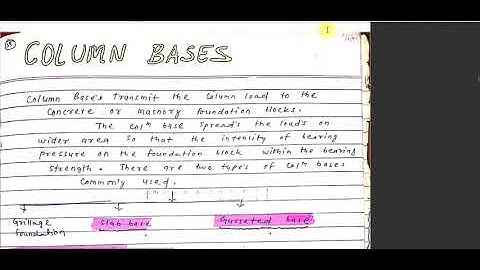 COLUMN BASES
Column Base's Transmit the column load to the
concrete or masnory foundation blocks.
The colⁿ base spread's the load's on
wider area so that the intensity of bearing
pressure on the foundation block within the bearing
strength. There are two type's of colⁿ bases
commonly used.
Grillage foundation
Slab base
Gusseted base